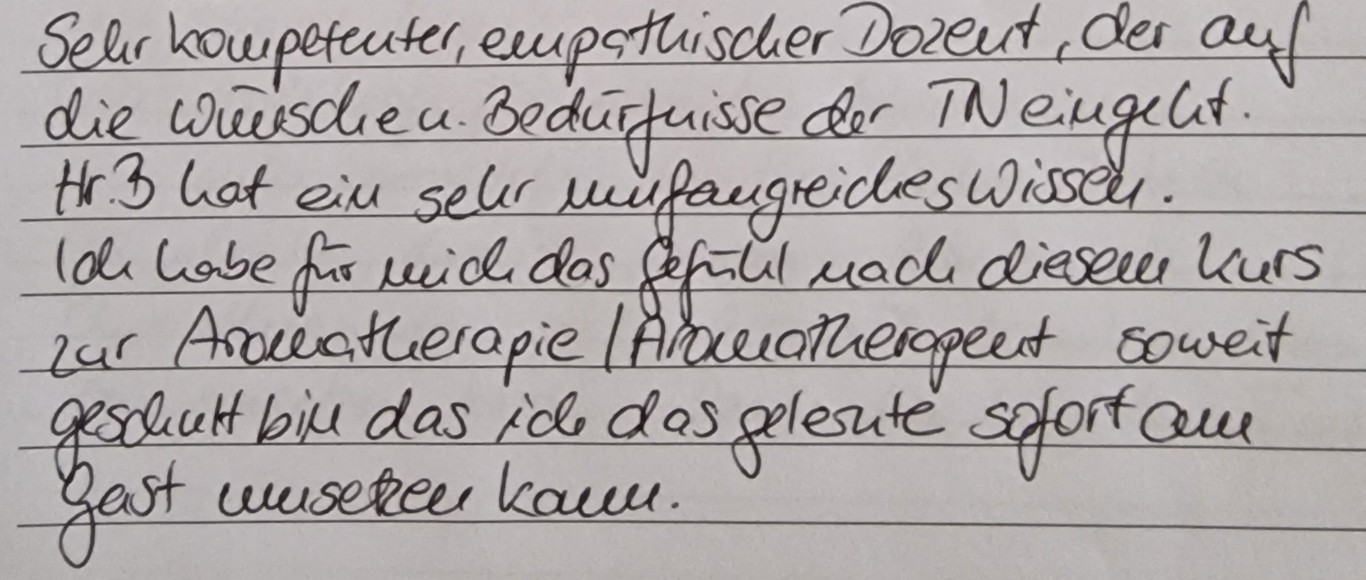 Sehr kompetenter, empathischer Dozent, der auf
die Wünsche u. Bedürfnisse der TN eingeht.
Hr. B hat ein sehr umfangreiches Wissen.
Ich habe für mich das Gefühl nach diesem Kurs
zur Aromatherapie / Aromatherapeut soweit
geschult bin das ich das gelernte sofort am
Gast umsetzen kann.